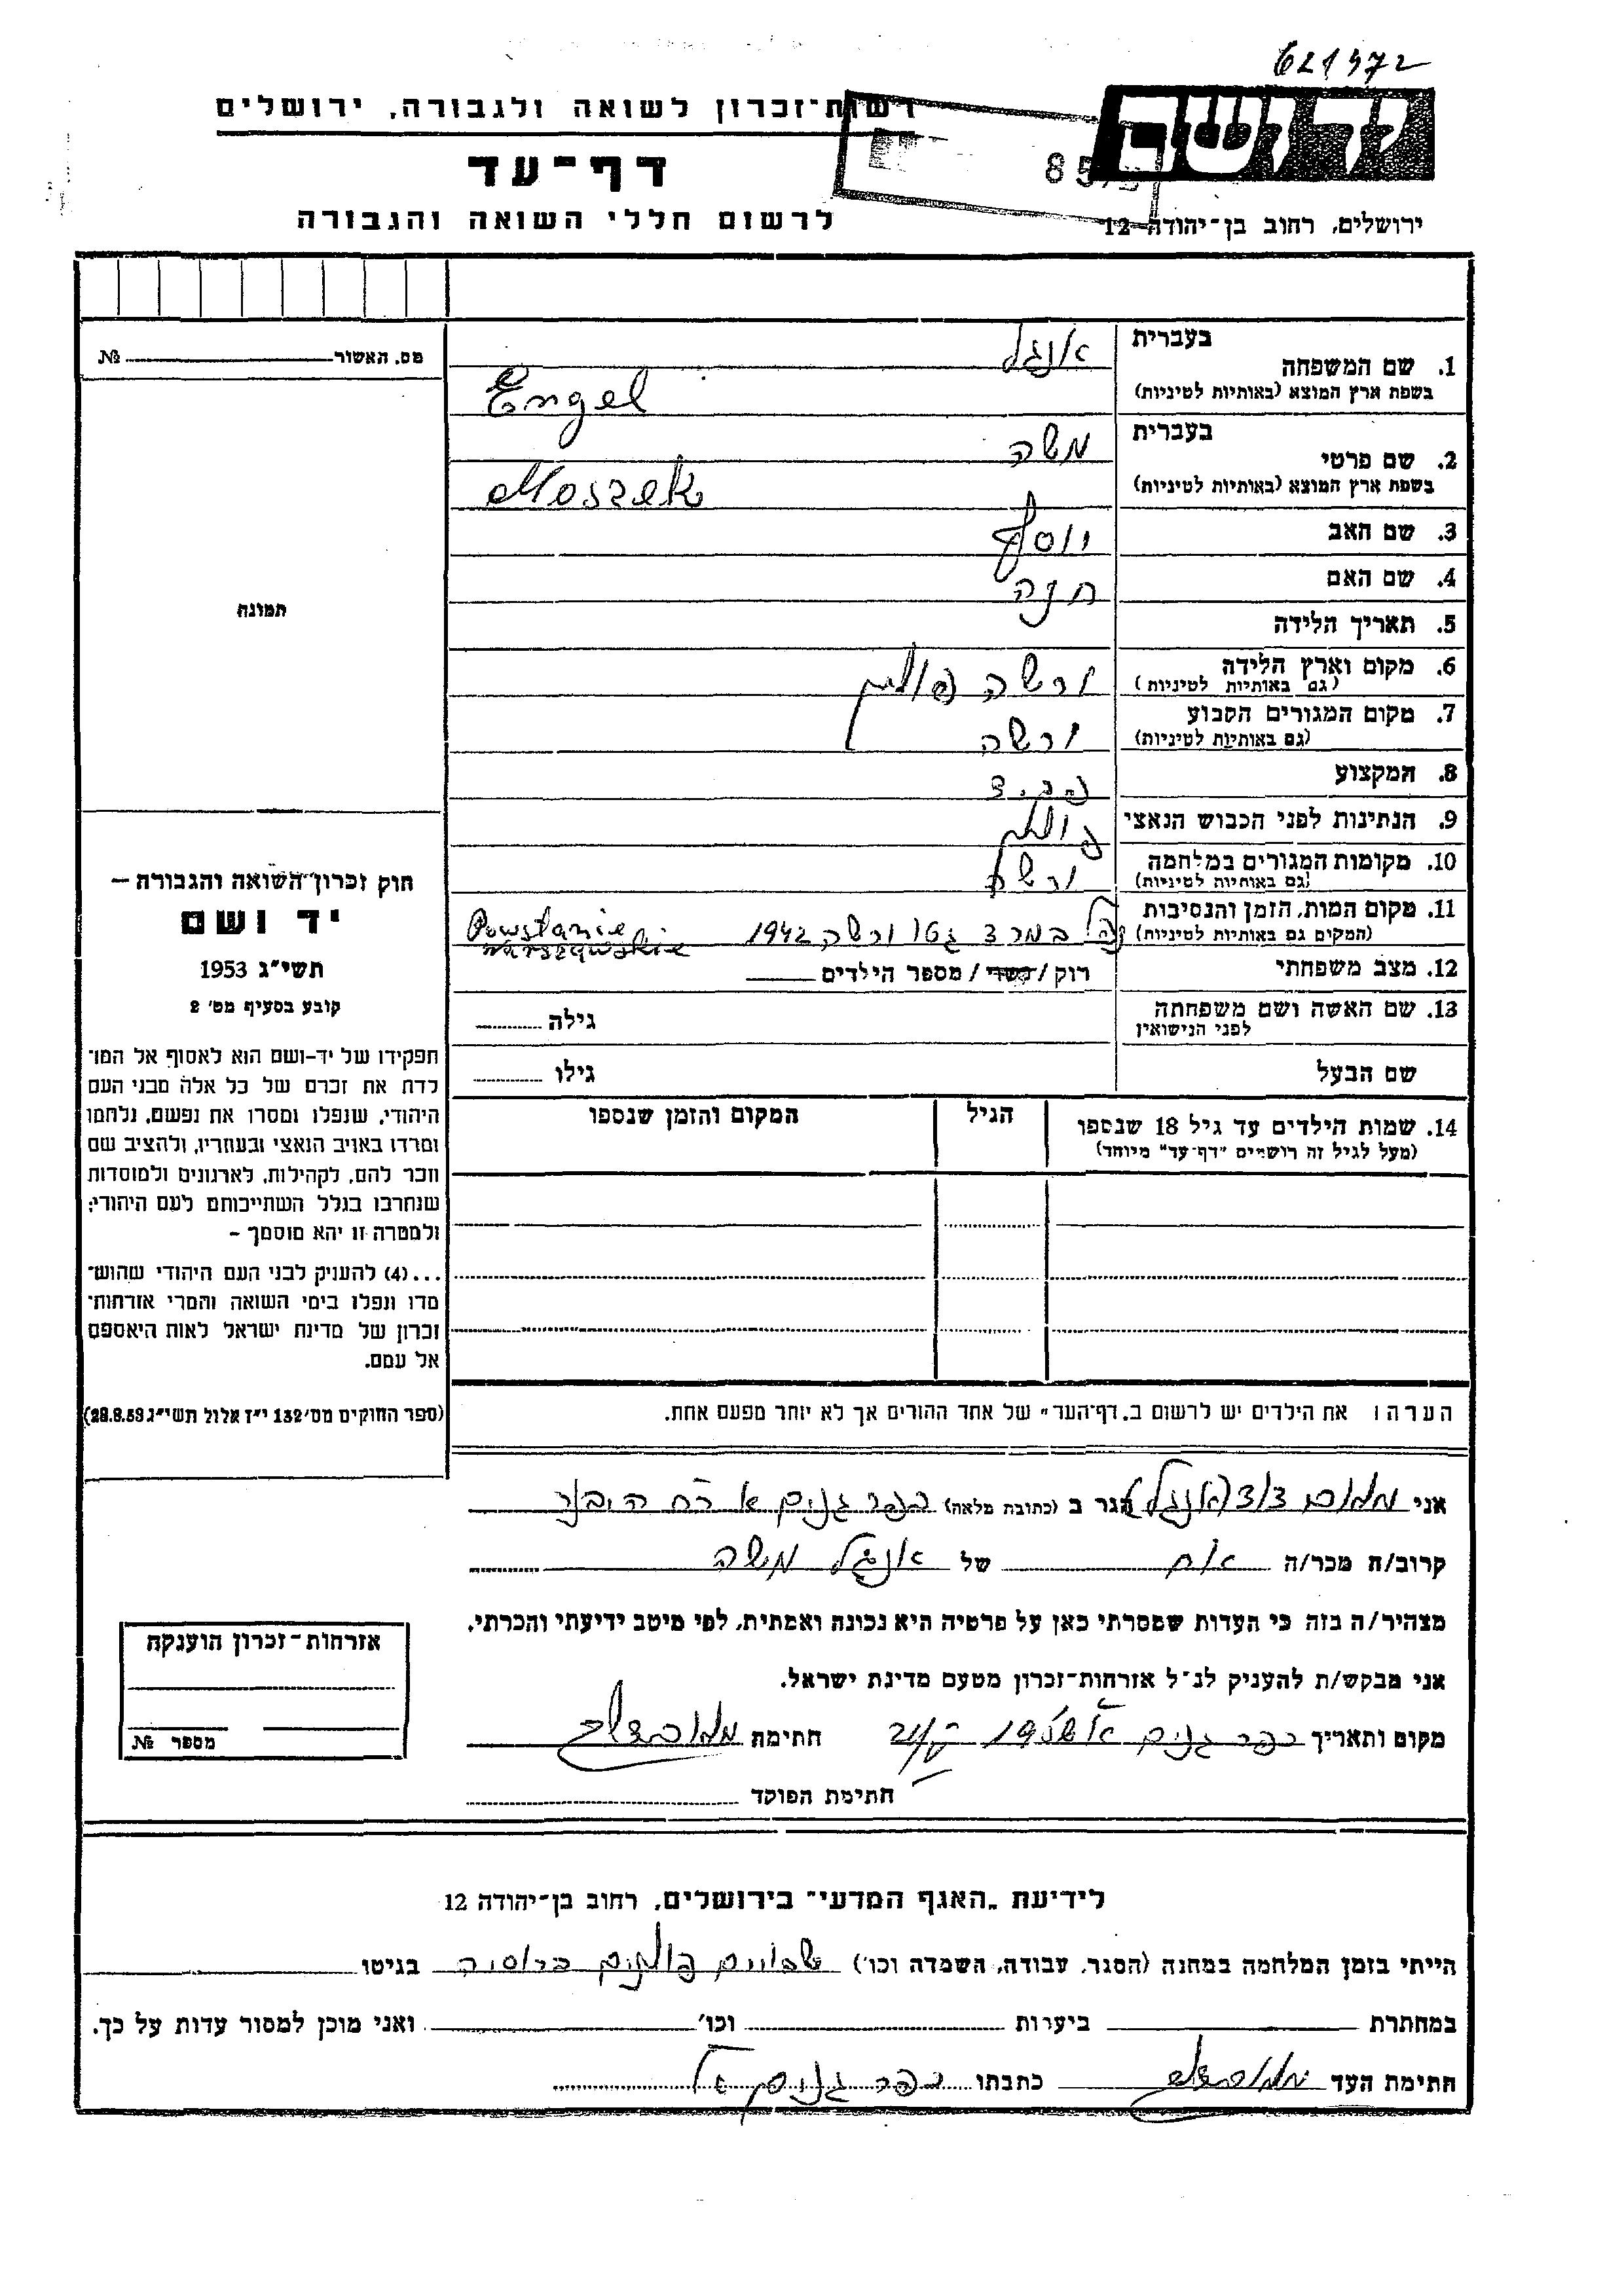 621972
רשות־זכרון לשואה ולגבורה, ירושלים
יד ושם
דף־עד
לרשום חללי השואה והגבורה
ירושלים, רחוב בן־יהודה 12
מס. האשור № 
1. שם המשפחה
בעברית אנגל
בשפת ארץ המוצא (באותיות לטיניות) Engel
2. שם פרטי
בעברית משה
בשפת ארץ המוצא (באותיות לטיניות) Moszek
3. שם האב יוסף
4. שם האם חנה
5. תאריך הלידה
6. מקום וארץ הלידה ורשה פולין
(גם באותיות לטיניות)
7. מקום המגורים הקבוע ורשה
(גם באותיות לטיניות)
8. המקצוע
9. הנתינות לפני הכבוש הנאצי פולין
10. מקומות המגורים במלחמה ורשה
(גם באותיות לטיניות)
11. מקום המות, הזמן והנסיבות נפל במרד גטו ורשה 1942 Powstanie
(המקום גם באותיות לטיניות) Warszawskie
12. מצב משפחתי רוק / נשוי / מספר הילדים
13. שם האשה ושם משפחתה גילה
לפני הנישואין
שם הבעל גילו
14. שמות הילדים עד גיל 18 שנספו הגיל המקום והזמן שנספו
(מעל לגיל זה רושמים "דף־עד" מיוחד)
תמונה
חוק זכרון השואה והגבורה —
יד ושם
תשי״ג 1953
קובע בסעיף מס׳ 2
תפקידו של יד־ושם הוא לאסוף אל המו־
לדת את זכרם של כל אלה מבני העם
היהודי, שנפלו ומסרו את נפשם, נלחמו
ומרדו באויב הנאצי ובעוזריו, ולהציב שם
וזכר להם, לקהילות, לארגונים ולמוסדות
שנחרבו בגלל השתייכותם לעם היהודי;
ולמטרה זו יהא מוסמך —
...(4) להעניק לבני העם היהודי שהוש־
מדו ונפלו בימי השואה והמרי אזרחות־
זכרון של מדינת ישראל לאות היאספם
אל עמם.
(ספר החוקים מס׳ 132 י״ז אלול תשי״ג 28.8.53)
הערה: את הילדים יש לרשום ב„דף־העד" של אחד ההורים אך לא יותר מפעם אחת.
אני דוד (אנגל) הגר ב (כתובת מלאה) בכפר גנים א רח היבנר
קרוב/ה מכר/ה אח של אנגל משה
מצהיר/ה בזה כי העדות שמסרתי כאן על פרטיה היא נכונה ואמתית, לפי מיטב ידיעתי והכרתי.
אני מבקש/ת להעניק לנ״ל אזרחות־זכרון מטעם מדינת ישראל.
מקום ותאריך כפר גנים א חתימת
חתימת הפוקד
אזרחות־זכרון הוענקה
מספר №
לידיעת „האגף המדעי" בירושלים, רחוב בן־יהודה 12
הייתי בזמן המלחמה במחנה (הסגר, עבודה, השמדה וכו׳) שבויים פולנים ברוסיה בגיטו
במחתרת ביערות וכו׳ ואני מוכן למסור עדות על כך.
חתימת העד כתבתו כפר גנים א׳